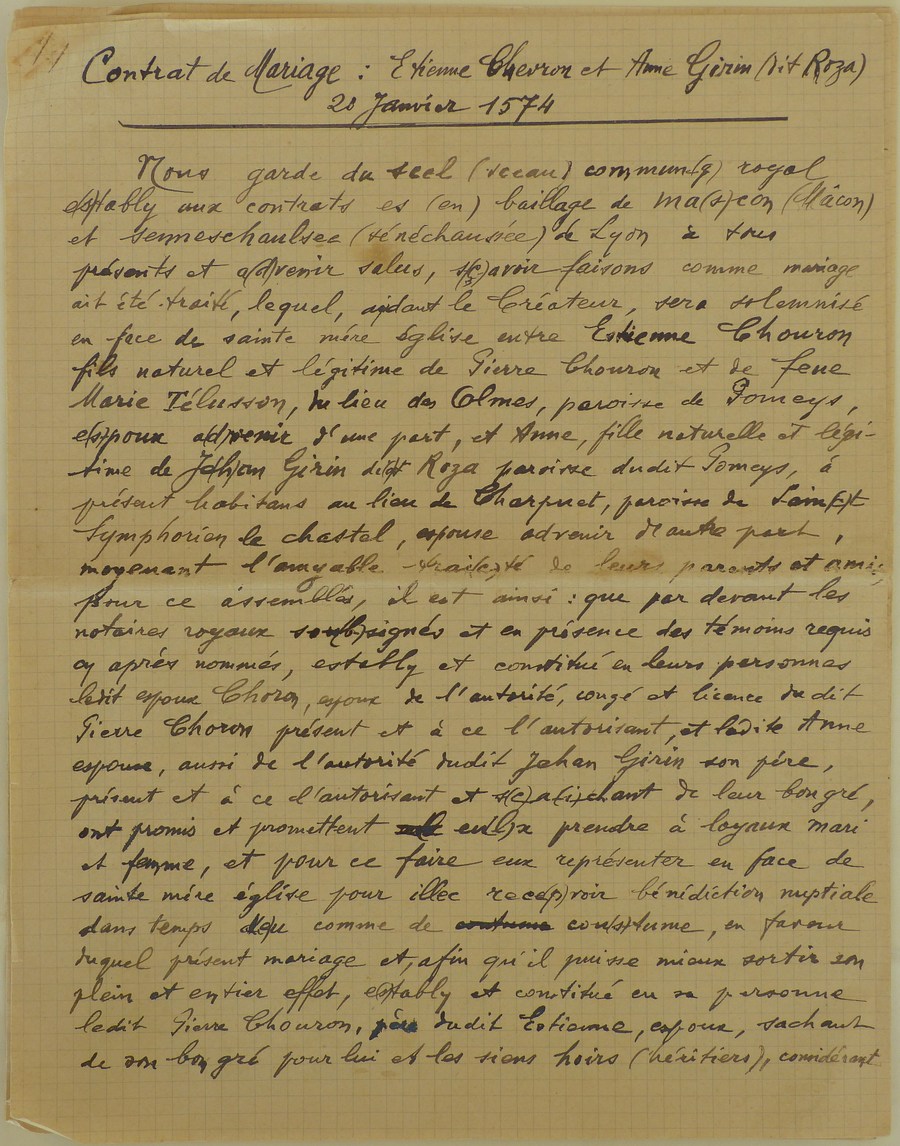 Contrat de Mariage : Etienne Chevron et Anne Girin (dit Roza)
20 Janvier 1574
Nous garde du scel (sceau) commun(g) royal
e(s)tably aux contrats es (en) baillage de Ma(s)con (Mâcon)
et senneschaulsee (sénéchaussée) de Lyon à tous
présents et a(d)venir salus, s(ç)avoir faisons comme mariage
ait été traité, lequel, aidant le Créateur, sera solemnisé
en face de sainte mère église entre Estienne Chouron
fils naturel et légitime de Pierre Chouron et de feue
Marie Télusson, du lieu des Olmes, paroisse de Pomeys,
e(s)poux a(d)venir d'une part, et Anne, fille naturelle et légi-
time de Je(h)an Girin di(c)t Roza paroisse dudit Pomeys, à
présent habitans au lieu de Charpuet, paroisse de Sain(c)t
Symphorien le chastel, espouse advenir d'autre part,
moyenant l'amyable trai(c)té de leurs parents et amis
pour ce assemblés, il est ainsi : que par devant les
notaires royaux sou(b)signés et en présence des témoins requis
cy après nommés, estably et constitué en leurs personnes
ledit espoux Choron, espoux de l'autorité, congé et licence du dit
Pierre Choron présent et à ce l'autorisant, et ladite Anne
espouse, aussi de l'autorité dudit Jehan Girin son père,
présent et à ce l'autorisant et s(ç)a(i)chant de leur bon gré,
ont promis et promettent eu(l)x prendre à loyaux mari
et femme, et pour ce faire eux représenter en face de
sainte mère église pour illec rece(p)voir bénédiction nuptiale
dans temps d(e)u comme de coutume cou(s)tume, en faveur
duquel présent mariage et, afin qu'il puisse mieux sortir son
plein et entier effet, e(s)tably et constitué en sa personne
ledit Pierre Chouron, père dudit Estienne, espoux, sachant
de son bon gré pour lui et les siens hoirs (héritiers), considérant